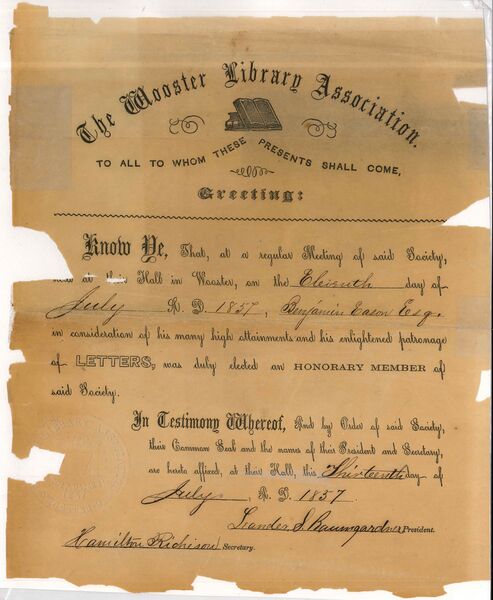 The Wooster Library Association.
TO ALL TO WHOM THESE PRESENTS SHALL COME,
Greeting:
Know Ye, That, at a regular Meeting of said Society,
at their Hall in Wooster, on the Eleventh day of
July A. D. 1857, Benjamin Eason Esq.
in consideration of his many high attainments and his enlightened patronage
of LETTERS, was duly elected an HONORARY MEMBER of
said Society.
In Testimony Whereof, And by Order of said Society,
their Common Seal and the names of their President and Secretary,
are hereto affixed, at their Hall, this Thirteenth day of
July, A. D. 1857.
Leander S. Baumgardner President.
Hamilton Richison Secretary.